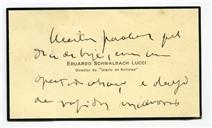 Muitos parabens pelo
dia de hoje, com um
EDUARDO SCHWALBACH LUCCI
Director do "Diario de Noticias"
apertado abraço e desejo
de rapidas melhoras